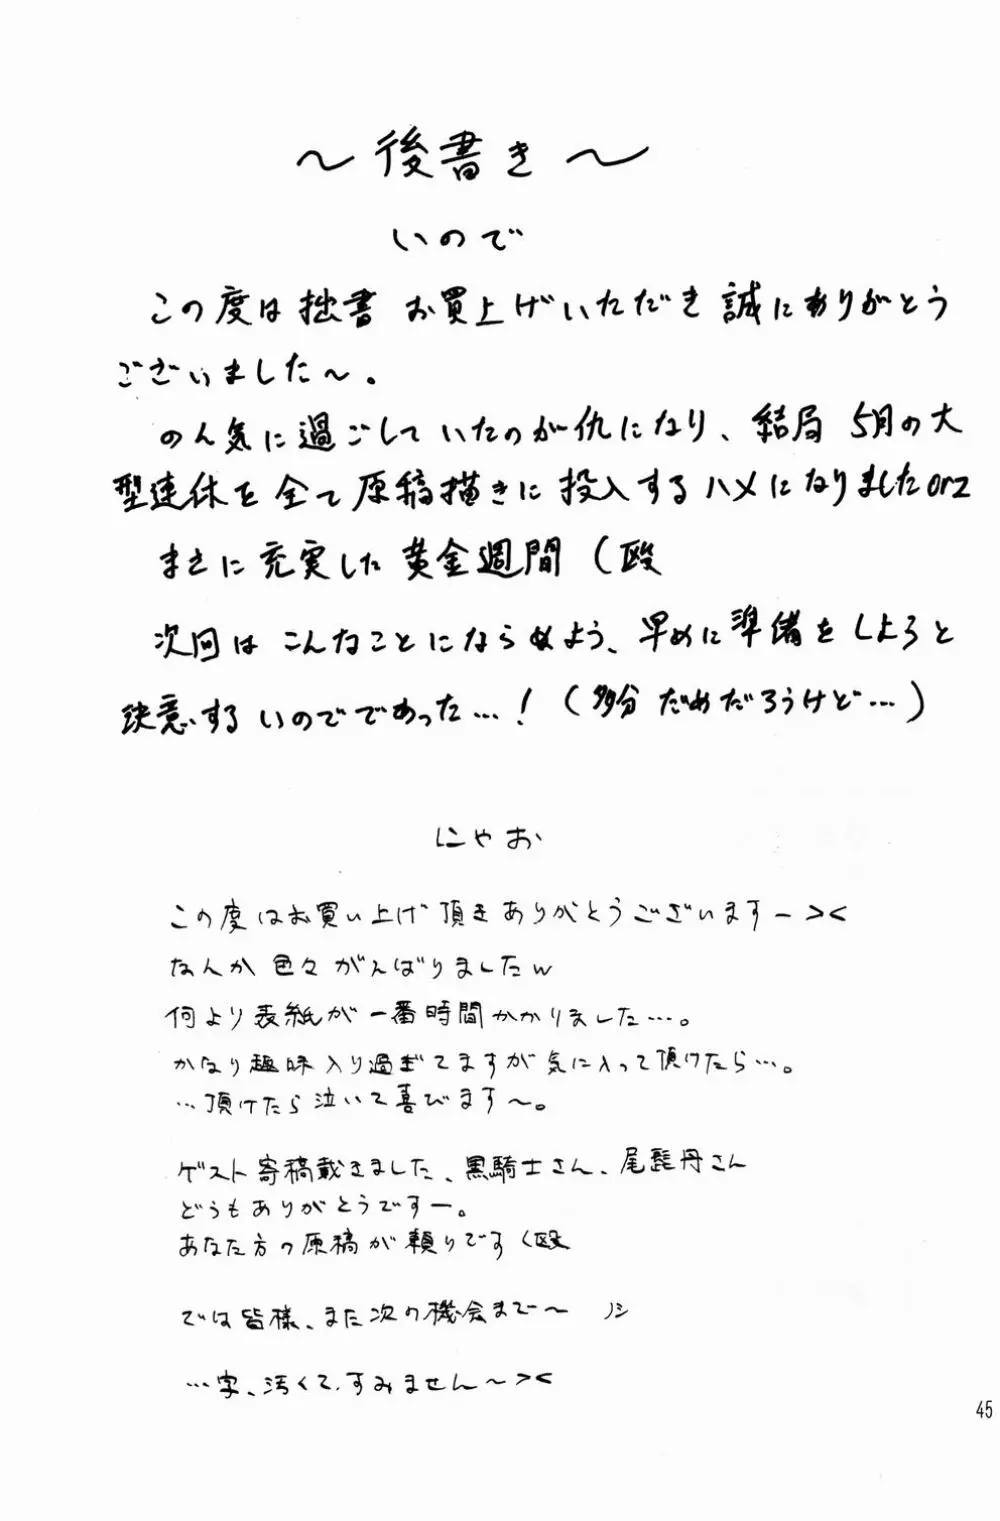 ～後書き～
いので
この度は拙書 お買上げいただき誠にありがとう
ございました～。
のん気に過ごしていたのが仇になり、結局 5月の大
型連休を全て原稿描きに投入するハメになりましたorz
まさに充実した黄金週間（殴
次回は こんなことにならぬよう、早めに準備をしようと
決意するいのでであった…！（多分 だめだろうけど…）
にゃお
この度はお買い上げ頂きありがとうございますー><
なんか色々がんばりましたw
何より表紙が一番時間かかりました…。
かなり趣味入り過ぎてますが気に入って頂けたら…。
…頂けたら泣いて喜びます～。
ゲスト寄稿戴きました、黒騎士さん、尾髭丹さん
どうもありがとうですー。
あなた方の原稿が頼りです（殴
では皆様、また次の機会まで～ ノシ
…字、汚くて、すみません～><
45